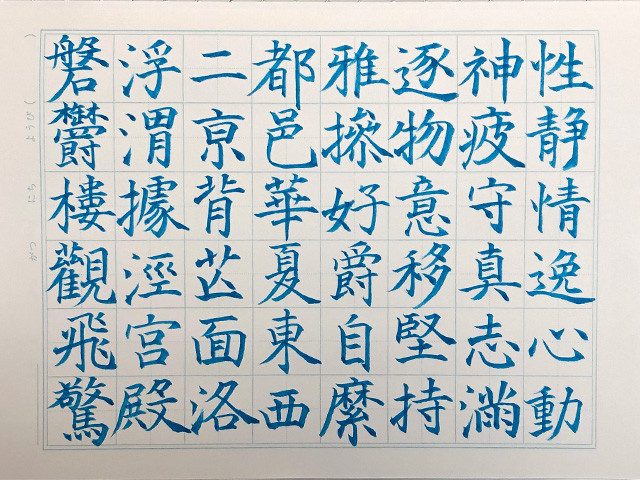 性静情逸心動
神疲守真志滿
逐物意移堅持
雅操好爵自縻
都邑華夏東西
二京背芒面洛
浮渭據涇宮殿
磐欝樓觀飛驚